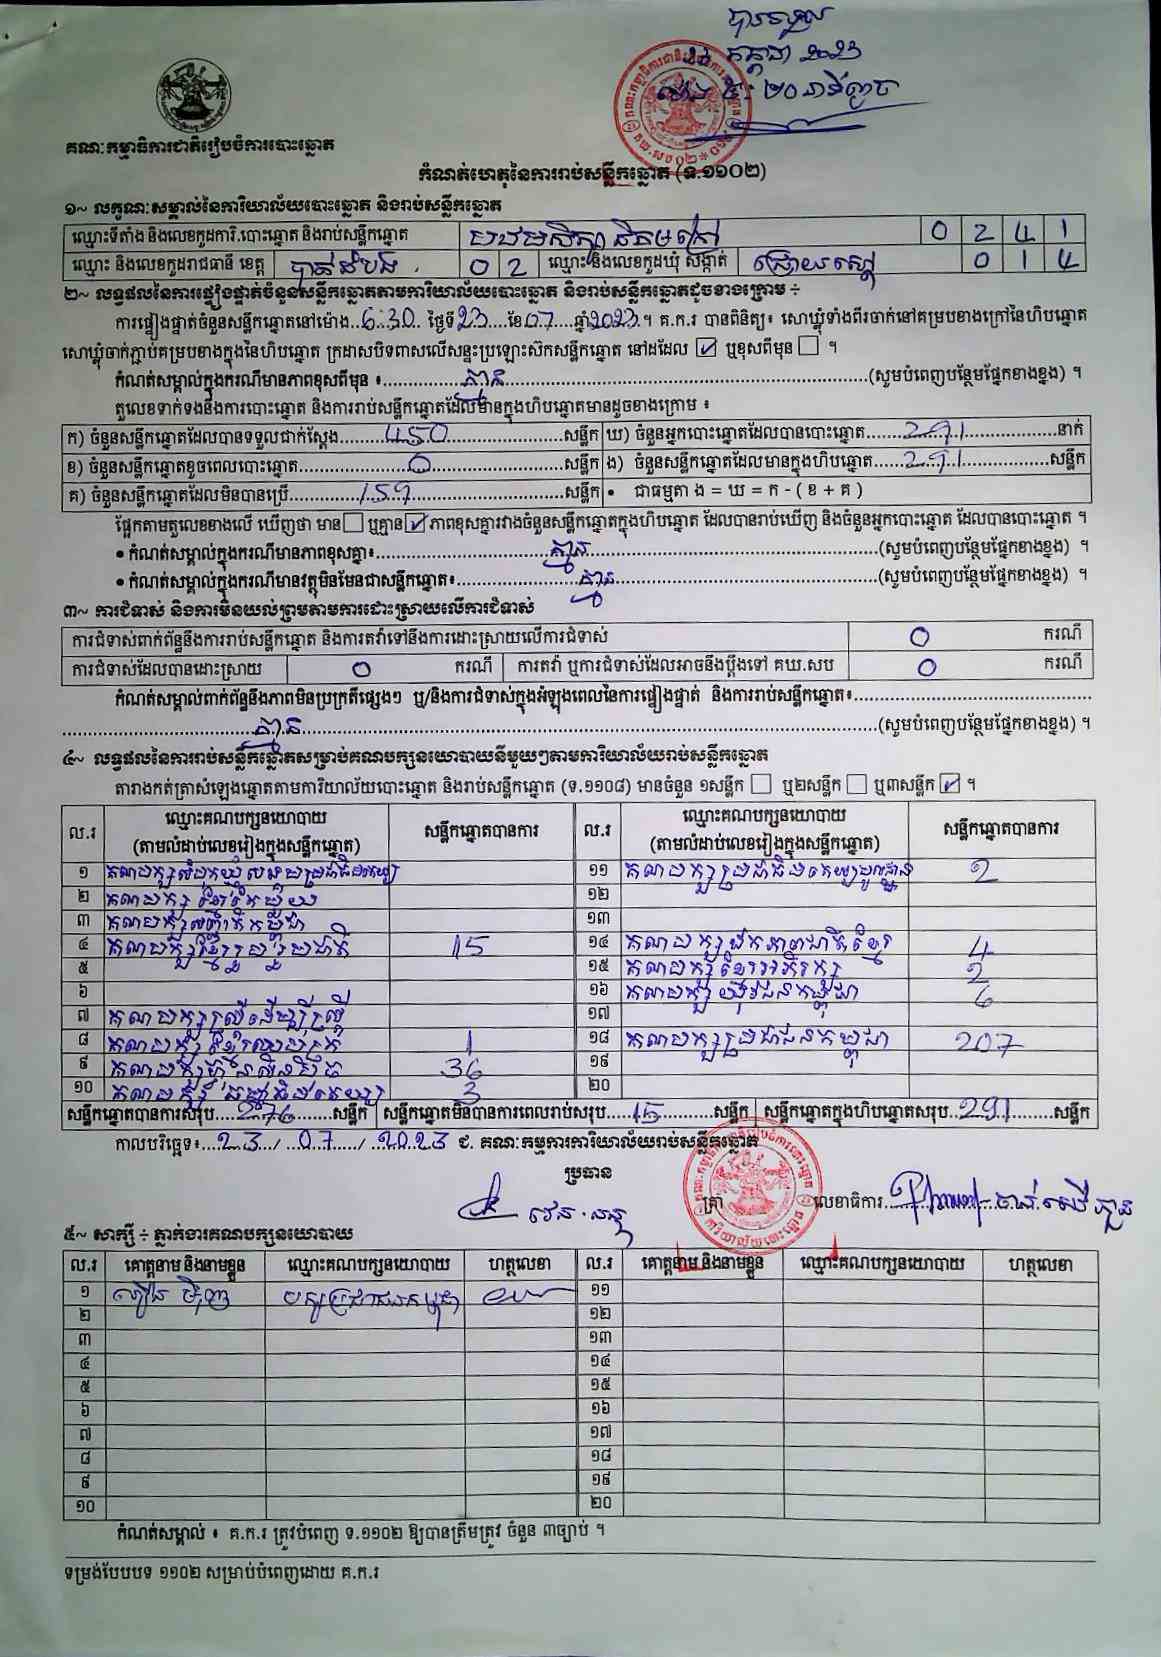 បានទទួល
២០២៣
ម៉ោង ៥:២០ នាទីល្ងាច
គណៈកម្មាធិការជាតិរៀបចំការបោះឆ្នោត
កំណត់ហេតុនៃការរាប់សន្លឹកឆ្នោត (ទ.១១០២)
១~ លក្ខណៈសម្គាល់នៃការិយាល័យបោះឆ្នោត និងរាប់សន្លឹកឆ្នោត
ឈ្មោះទីតាំង និងលេខកូដការិ.បោះឆ្នោត និងរាប់សន្លឹកឆ្នោត បឋមសិក្សា 0 2 4 1
ឈ្មោះ និងលេខកូដរាជធានី ខេត្ត បាត់ដំបង 0 2 ឈ្មោះ និងលេខកូដឃុំ សង្កាត់ ជ្រោយស្ដៅ 0 1 4
២~ លទ្ធផលនៃការផ្ទៀងផ្ទាត់ចំនួនសន្លឹកឆ្នោតតាមការិយាល័យបោះឆ្នោត និងរាប់សន្លឹកឆ្នោតដូចខាងក្រោម ÷
ការផ្ទៀងផ្ទាត់ចំនួនសន្លឹកឆ្នោតនៅម៉ោង...6:30.. ថ្ងៃទី23....ខែ07....ឆ្នាំ2023.។ គ.ក.រ បានពិនិត្យ៖ សោឃ្លុំទាំងពីរចាក់នៅគម្របខាងក្រៅនៃហិបឆ្នោត
សោឃ្លុំចាក់ភ្ជាប់គម្របខាងក្នុងនៃហិបឆ្នោត ក្រដាសបិទពាសលើសន្ទះប្រឡោះស៊កសន្លឹកឆ្នោត នៅដដែល ☑ ឬខុសពីមុន ☐ ។
កំណត់សម្គាល់ក្នុងករណីមានភាពខុសពីមុន ៖............គ្មាន............(សូមបំពេញបន្ថែមផ្នែកខាងខ្នង) ។
តួលេខទាក់ទងនឹងការបោះឆ្នោត និងការរាប់សន្លឹកឆ្នោតដែលមានក្នុងហិបឆ្នោតមានដូចខាងក្រោម ៖
ក) ចំនួនសន្លឹកឆ្នោតដែលបានទទួលជាក់ស្តែង......450......សន្លឹក ឃ) ចំនួនអ្នកបោះឆ្នោតដែលបានបោះឆ្នោត......291......នាក់
ខ) ចំនួនសន្លឹកឆ្នោតខូចពេលបោះឆ្នោត......0......សន្លឹក ង) ចំនួនសន្លឹកឆ្នោតដែលមានក្នុងហិបឆ្នោត......291......សន្លឹក
គ) ចំនួនសន្លឹកឆ្នោតដែលមិនបានប្រើ......159......សន្លឹក • ជាធម្មតា ង = ឃ = ក - ( ខ + គ )
ផ្អែកតាមតួលេខខាងលើ ឃើញថា មាន ☐ ឬគ្មាន ☑ ភាពខុសគ្នារវាងចំនួនសន្លឹកឆ្នោតក្នុងហិបឆ្នោត ដែលបានរាប់ឃើញ និងចំនួនអ្នកបោះឆ្នោត ដែលបានបោះឆ្នោត ។
• កំណត់សម្គាល់ក្នុងករណីមានភាពខុសគ្នា៖............គ្មាន............(សូមបំពេញបន្ថែមផ្នែកខាងខ្នង) ។
• កំណត់សម្គាល់ក្នុងករណីមានវត្ថុមិនមែនជាសន្លឹកឆ្នោត៖............គ្មាន............(សូមបំពេញបន្ថែមផ្នែកខាងខ្នង) ។
៣~ ការជំទាស់ និងការមិនយល់ព្រមតាមការដោះស្រាយលើការជំទាស់
ការជំទាស់ពាក់ព័ន្ធនឹងការរាប់សន្លឹកឆ្នោត និងការតវ៉ាទៅនឹងការដោះស្រាយលើការជំទាស់ 0 ករណី
ការជំទាស់ដែលបានដោះស្រាយ 0 ករណី ការតវ៉ា ឬការជំទាស់ដែលអាចនឹងប្តឹងទៅ គឃ.សប 0 ករណី
កំណត់សម្គាល់ពាក់ព័ន្ធនឹងភាពមិនប្រក្រតីផ្សេងៗ ឬ/និងការជំទាស់ក្នុងអំឡុងពេលនៃការផ្ទៀងផ្ទាត់ និងការរាប់សន្លឹកឆ្នោត៖............
............គ្មាន............(សូមបំពេញបន្ថែមផ្នែកខាងខ្នង) ។
៤~ លទ្ធផលនៃការរាប់សន្លឹកឆ្នោតសម្រាប់គណបក្សនយោបាយនីមួយៗតាមការិយាល័យរាប់សន្លឹកឆ្នោត
តារាងកត់ត្រាសំឡេងឆ្នោតតាមការិយាល័យបោះឆ្នោត និងរាប់សន្លឹកឆ្នោត (ទ.១១០៨) មានចំនួន ១សន្លឹក ☐ ឬ២សន្លឹក ☐ ឬ៣សន្លឹក ☑ ។
ល.រ ឈ្មោះគណបក្សនយោបាយ (តាមលំដាប់លេខរៀងក្នុងសន្លឹកឆ្នោត) សន្លឹកឆ្នោតបានការ ល.រ ឈ្មោះគណបក្សនយោបាយ (តាមលំដាប់លេខរៀងក្នុងសន្លឹកឆ្នោត) សន្លឹកឆ្នោតបានការ
១ គណបក្ស ១១ គណបក្សប្រជាធិបតេយ្យមូលដ្ឋាន 2
២ គណបក្សខ្មែរតែមួយ ១២
៣ គណបក្សសញ្ជាតិកម្ពុជា ១៣
៤ គណបក្សខ្មែររួបរួមជាតិ 15 ១៤ គណបក្សឯកភាពជាតិខ្មែរ 4
៥ ១៥ គណបក្សខ្មែរអភិរក្ស 2
៦ ១៦ គណបក្សយុវជនកម្ពុជា 6
៧ គណបក្សស្រីដើម្បីស្រី ១៧
៨ គណបក្សខ្មែរឈប់ក្រ 1 ១៨ គណបក្សប្រជាជនកម្ពុជា 207
៩ គណបក្សហ៊្វុនស៊ិនប៉ិច 36 ១៩
១០ គណបក្ស 3 ២០
សន្លឹកឆ្នោតបានការសរុប......276......សន្លឹក សន្លឹកឆ្នោតមិនបានការពេលរាប់សរុប......15......សន្លឹក សន្លឹកឆ្នោតក្នុងហិបឆ្នោតសរុប..291......សន្លឹក
កាលបរិច្ឆេទ៖....23..../..07..../..2023 ជ. គណៈកម្មការការិយាល័យរាប់សន្លឹកឆ្នោត
ប្រធាន
ត្រា លេខាធិការ
៥~ សាក្សី ÷ ភ្នាក់ងារគណបក្សនយោបាយ
ល.រ គោត្តនាម និងនាមខ្លួន ឈ្មោះគណបក្សនយោបាយ ហត្ថលេខា ល.រ គោត្តនាម និងនាមខ្លួន ឈ្មោះគណបក្សនយោបាយ ហត្ថលេខា
១ បក្សប្រជាជនកម្ពុជា ១១
២ ១២
៣ ១៣
៤ ១៤
៥ ១៥
៦ ១៦
៧ ១៧
៨ ១៨
៩ ១៩
១០ ២០
កំណត់សម្គាល់ ៖ គ.ក.រ ត្រូវបំពេញ ទ.១១០២ ឱ្យបានត្រឹមត្រូវ ចំនួន ៣ច្បាប់ ។
ទម្រង់បែបបទ ១១០២ សម្រាប់បំពេញដោយ គ.ក.រ